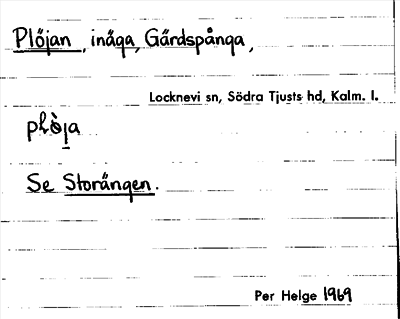 Plöjan, inäga, Gärdspånga,
Locknevi sn, Södra Tjusts hd, Kalm. l.
plö̀ja
Se Storängen.
Per Helge 1969